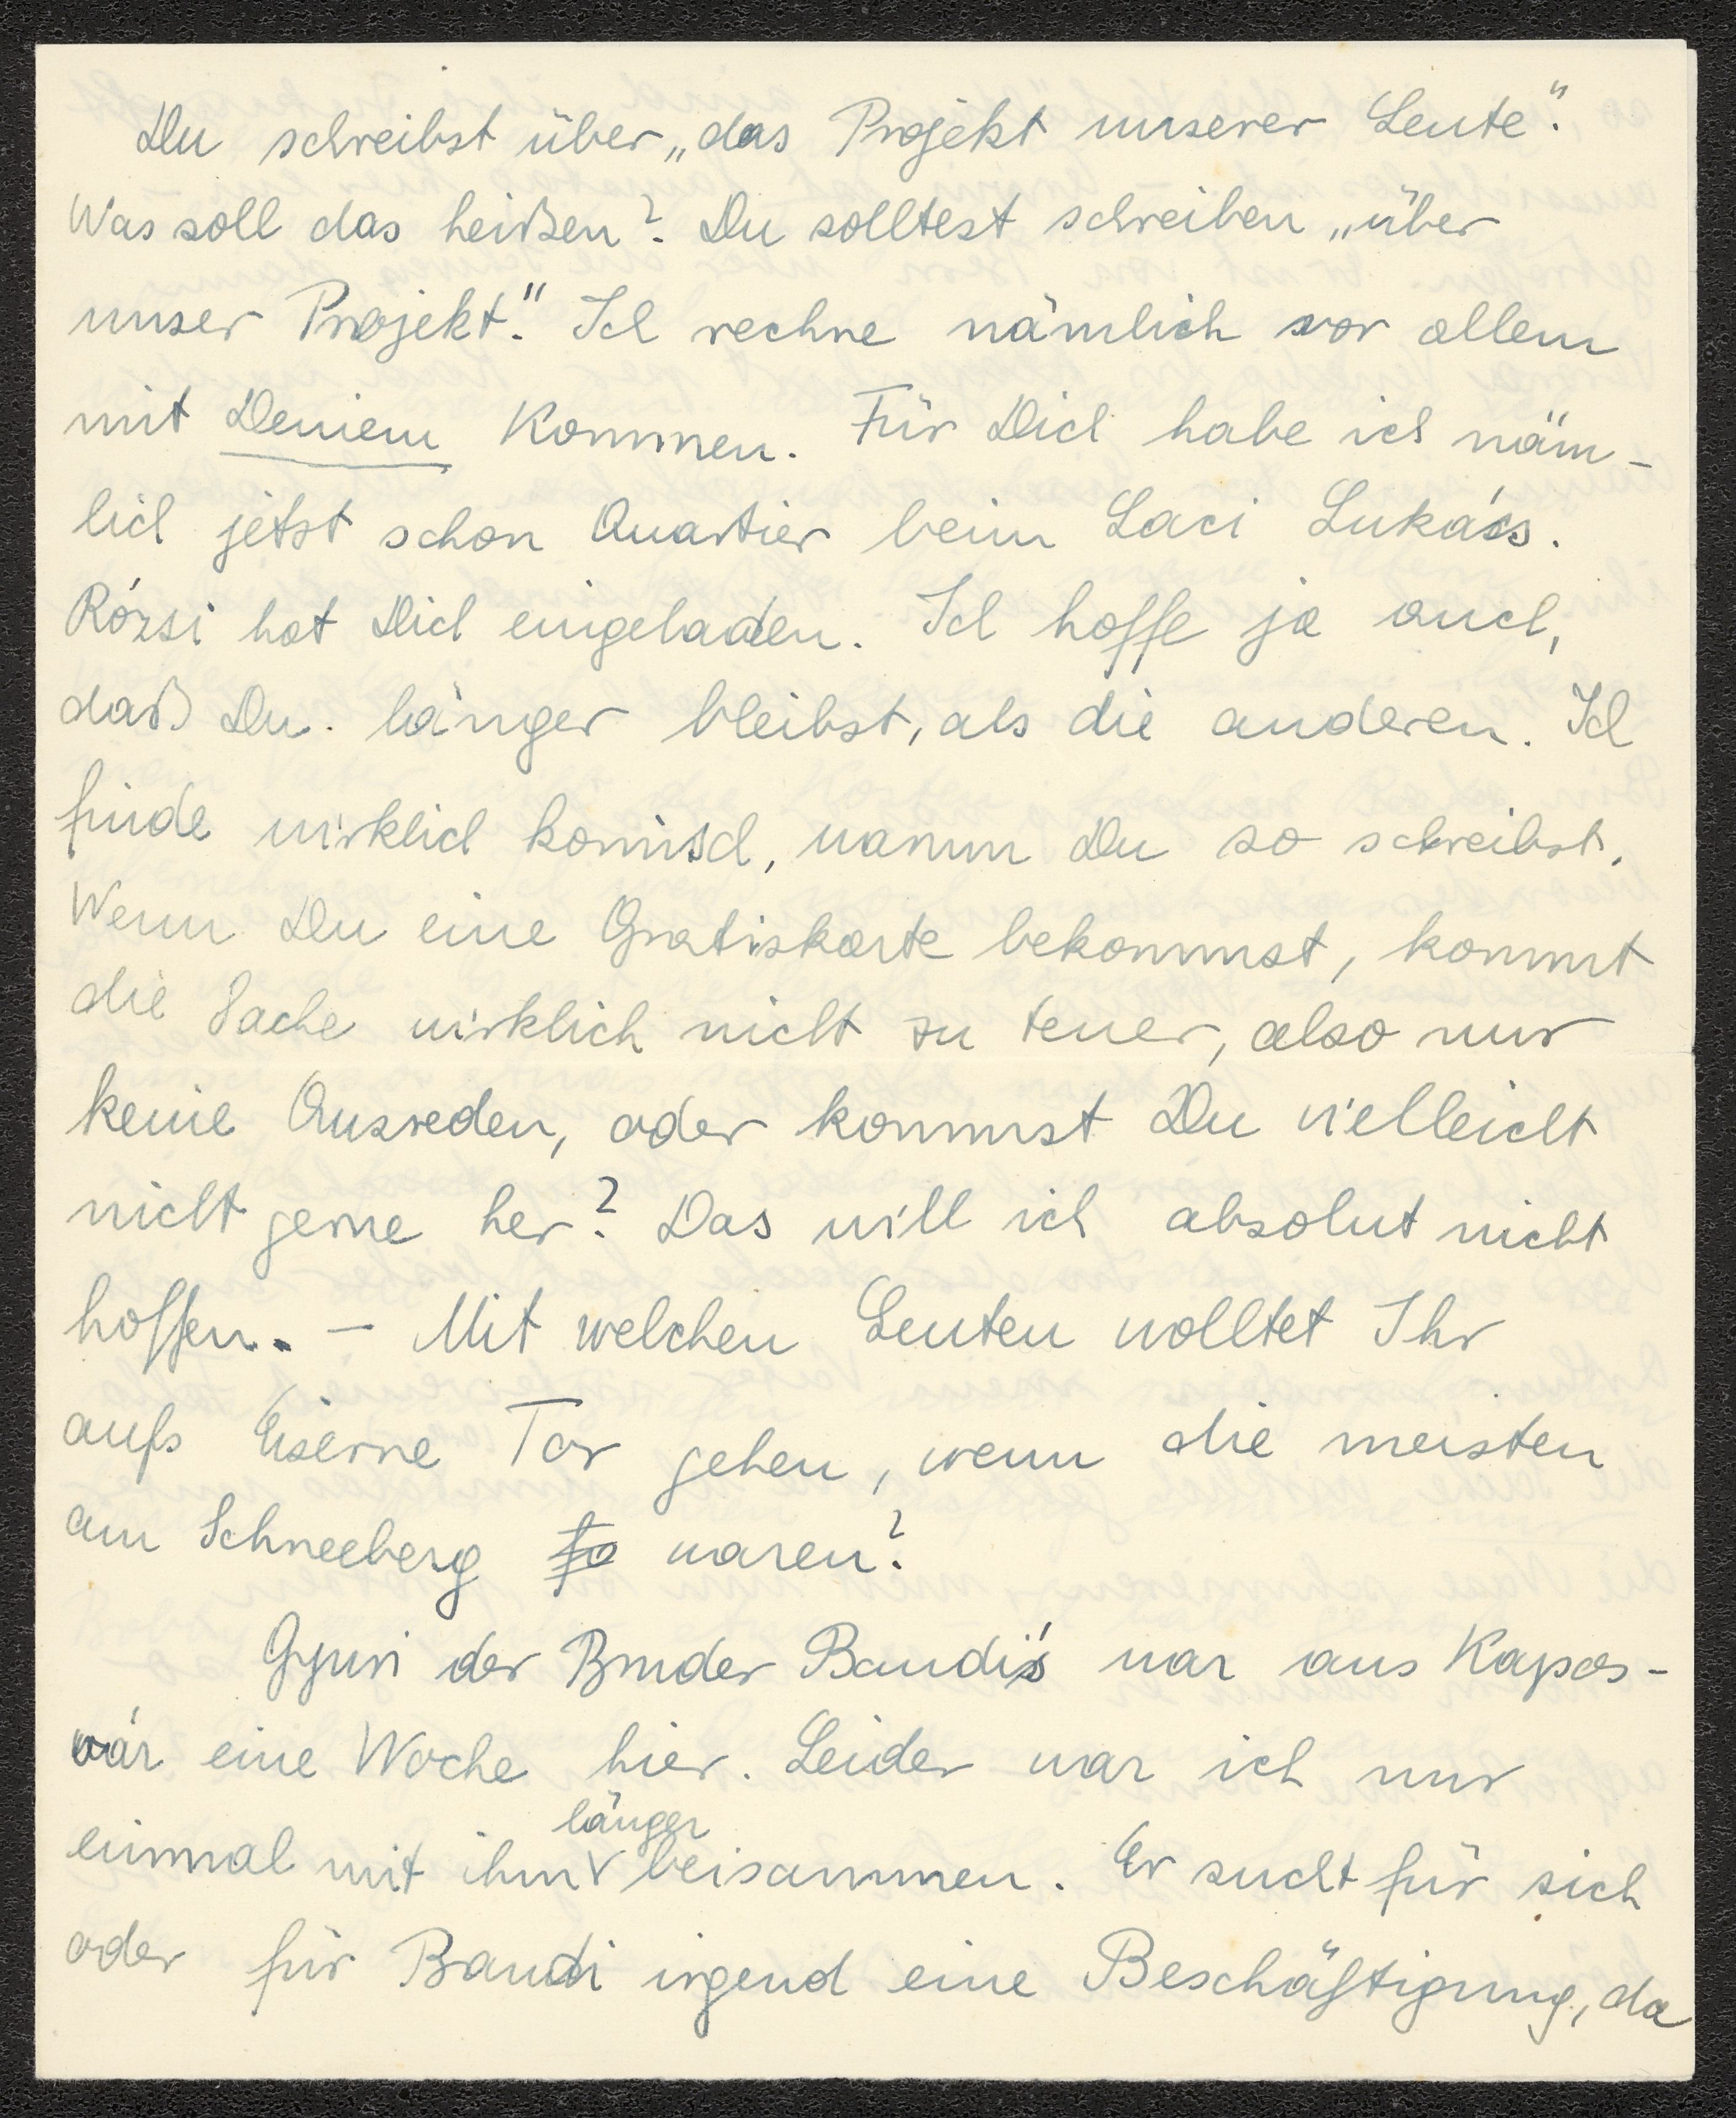 Du schreibst über „das Projekt unserer Leute".
Was soll das heißen? Du solltest schreiben „über
unser Projekt". Ich rechne nämlich vor allem
mit Deniem Kommen. Für Dich habe ich näm-
lich jetzt schon Quartier beim Laci Lukács.
Rózsi hat Dich eingeladen. Ich hoffe ja auch,
daß Du länger bleibst, als die anderen. Ich
finde wirklich komisch, warum Du so schreibst.
Wenn Du eine Gratiskarte bekommst, kommt
die Sache wirklich nicht zu teuer, also nur
keine Ausreden, oder kommst Du vielleicht
nicht gerne her? Das will ich absolut nicht
hoffen. – Mit welchen Leuten wolltet Ihr
aufs Eiserne Tor gehen, wenn die meisten
am Schneeberg waren?
Gyuri der Bruder Bandi's war aus Kapos-
vár eine Woche hier. Leider war ich nur
einmal mit ihm länger beisammen. Er sucht für sich
oder für Bandi irgend eine Beschäftigung, da